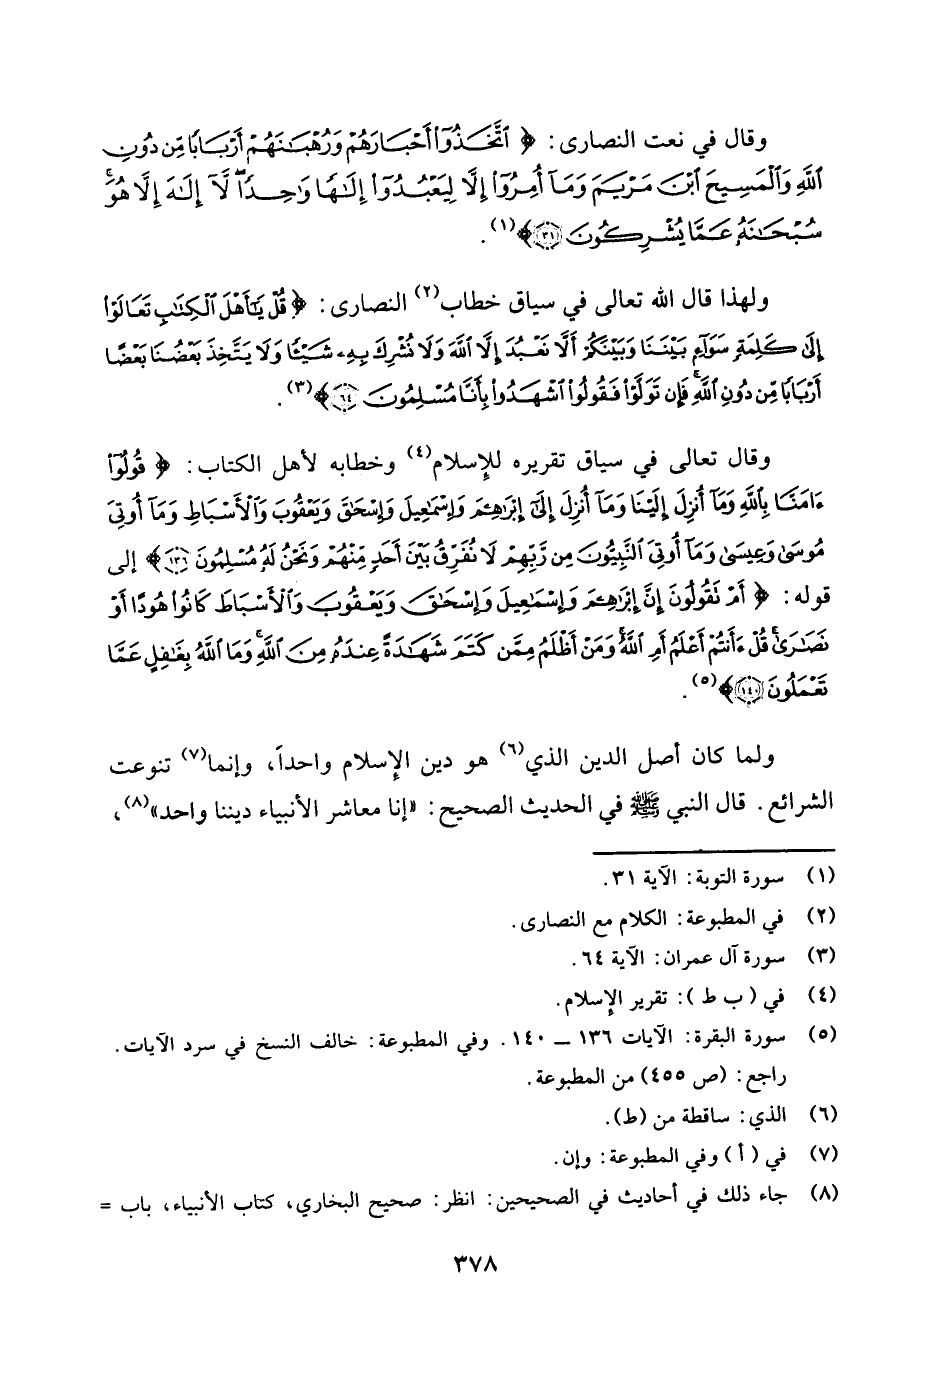 وقال في نعت النصارى: ﴿ ٱتَّخَذُوٓا۟ أَحْبَارَهُمْ وَرُهْبَـٰنَهُمْ أَرْبَابًا مِّن دُونِ
ٱللَّهِ وَٱلْمَسِيحَ ٱبْنَ مَرْيَمَ وَمَآ أُمِرُوٓا۟ إِلَّا لِيَعْبُدُوٓا۟ إِلَـٰهًا وَٰحِدًا ۖ لَّآ إِلَـٰهَ إِلَّا هُوَ ۚ
سُبْحَـٰنَهُۥ عَمَّا يُشْرِكُونَ ٣١﴾(١).
ولهذا قال الله تعالى في سياق خطاب(٢) النصارى: ﴿ قُلْ يَـٰٓأَهْلَ ٱلْكِتَـٰبِ تَعَالَوْا۟
إِلَىٰ كَلِمَةٍ سَوَآءٍ بَيْنَنَا وَبَيْنَكُمْ أَلَّا نَعْبُدَ إِلَّا ٱللَّهَ وَلَا نُشْرِكَ بِهِۦ شَيْـًٔا وَلَا يَتَّخِذَ بَعْضُنَا بَعْضًا
أَرْبَابًا مِّن دُونِ ٱللَّهِ ۚ فَإِن تَوَلَّوْا۟ فَقُولُوا۟ ٱشْهَدُوا۟ بِأَنَّا مُسْلِمُونَ ٦٤﴾(٣).
وقال تعالى في سياق تقريره للإسلام(٤) وخطابه لأهل الكتاب: ﴿ قُولُوٓا۟
ءَامَنَّا بِٱللَّهِ وَمَآ أُنزِلَ إِلَيْنَا وَمَآ أُنزِلَ إِلَىٰٓ إِبْرَٰهِـۧمَ وَإِسْمَـٰعِيلَ وَإِسْحَـٰقَ وَيَعْقُوبَ وَٱلْأَسْبَاطِ وَمَآ أُوتِىَ
مُوسَىٰ وَعِيسَىٰ وَمَآ أُوتِىَ ٱلنَّبِيُّونَ مِن رَّبِّهِمْ لَا نُفَرِّقُ بَيْنَ أَحَدٍ مِّنْهُمْ وَنَحْنُ لَهُۥ مُسْلِمُونَ ١٣٦﴾ إلى
قوله: ﴿ أَمْ تَقُولُونَ إِنَّ إِبْرَٰهِـۧمَ وَإِسْمَـٰعِيلَ وَإِسْحَـٰقَ وَيَعْقُوبَ وَٱلْأَسْبَاطَ كَانُوا۟ هُودًا أَوْ
نَصَـٰرَىٰ ۗ قُلْ ءَأَنتُمْ أَعْلَمُ أَمِ ٱللَّهُ ۗ وَمَنْ أَظْلَمُ مِمَّن كَتَمَ شَهَـٰدَةً عِندَهُۥ مِنَ ٱللَّهِ ۗ وَمَا ٱللَّهُ بِغَـٰفِلٍ عَمَّا
تَعْمَلُونَ ١٤٠﴾(٥).
ولما كان أصل الدين الذي(٦) هو دين الإسلام واحداً، وإنما(٧) تنوعت
الشرائع. قال النبي ﷺ في الحديث الصحيح: «إنا معاشر الأنبياء ديننا واحد»(٨)،
(١) سورة التوبة: الآية ٣١.
(٢) في المطبوعة: الكلام مع النصارى.
(٣) سورة آل عمران: الآية ٦٤.
(٤) في (ب ط): تقرير الإسلام.
(٥) سورة البقرة: الآيات ١٣٦ ــ ١٤٠. وفي المطبوعة: خالف النسخ في سرد الآيات.
راجع: (ص ٤٥٥) من المطبوعة.
(٦) الذي: ساقطة من (ط).
(٧) في (أ) وفي المطبوعة: وإن.
(٨) جاء ذلك في أحاديث في الصحيحين: انظر: صحيح البخاري، كتاب الأنبياء، باب =
٣٧٨